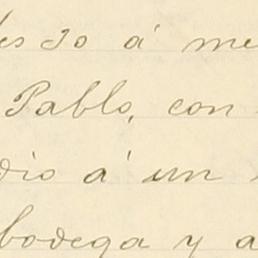 á me
Pablo, con
dio á un
bodega y a